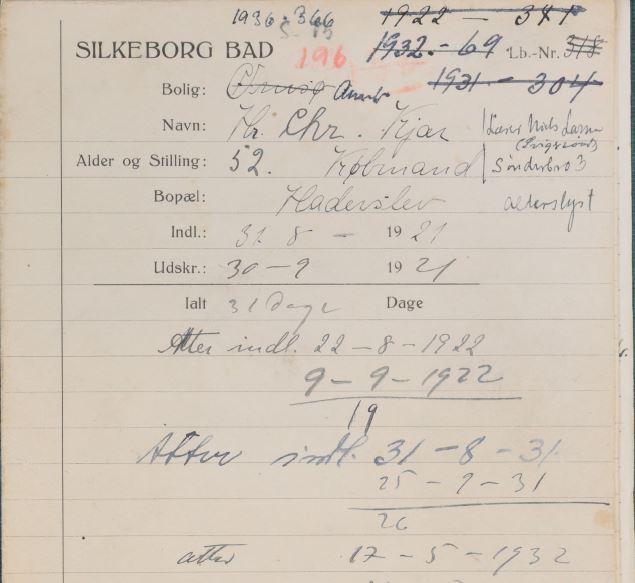 1936-366 1922 - 381
SILKEBORG BAD 196 1932.-69 Lb.-Nr. 318
1931-304
Bolig:
Navn: Hr. Chr. Kjær Lærer Niels Larsen
(Svigersøn)
Alder og Stilling: 52. Købmand Sønderbro 3
Bopæl: Haderslev Alderslyst
Indl.: 31 8 - 1921
Udskr.: 30-9 1921
Ialt 31 Dage Dage
Atter indl. 22-8-1922
9-9-1922
19
Atter indl. 31-8-31.
25-9-31
26
atter 17-5-1932